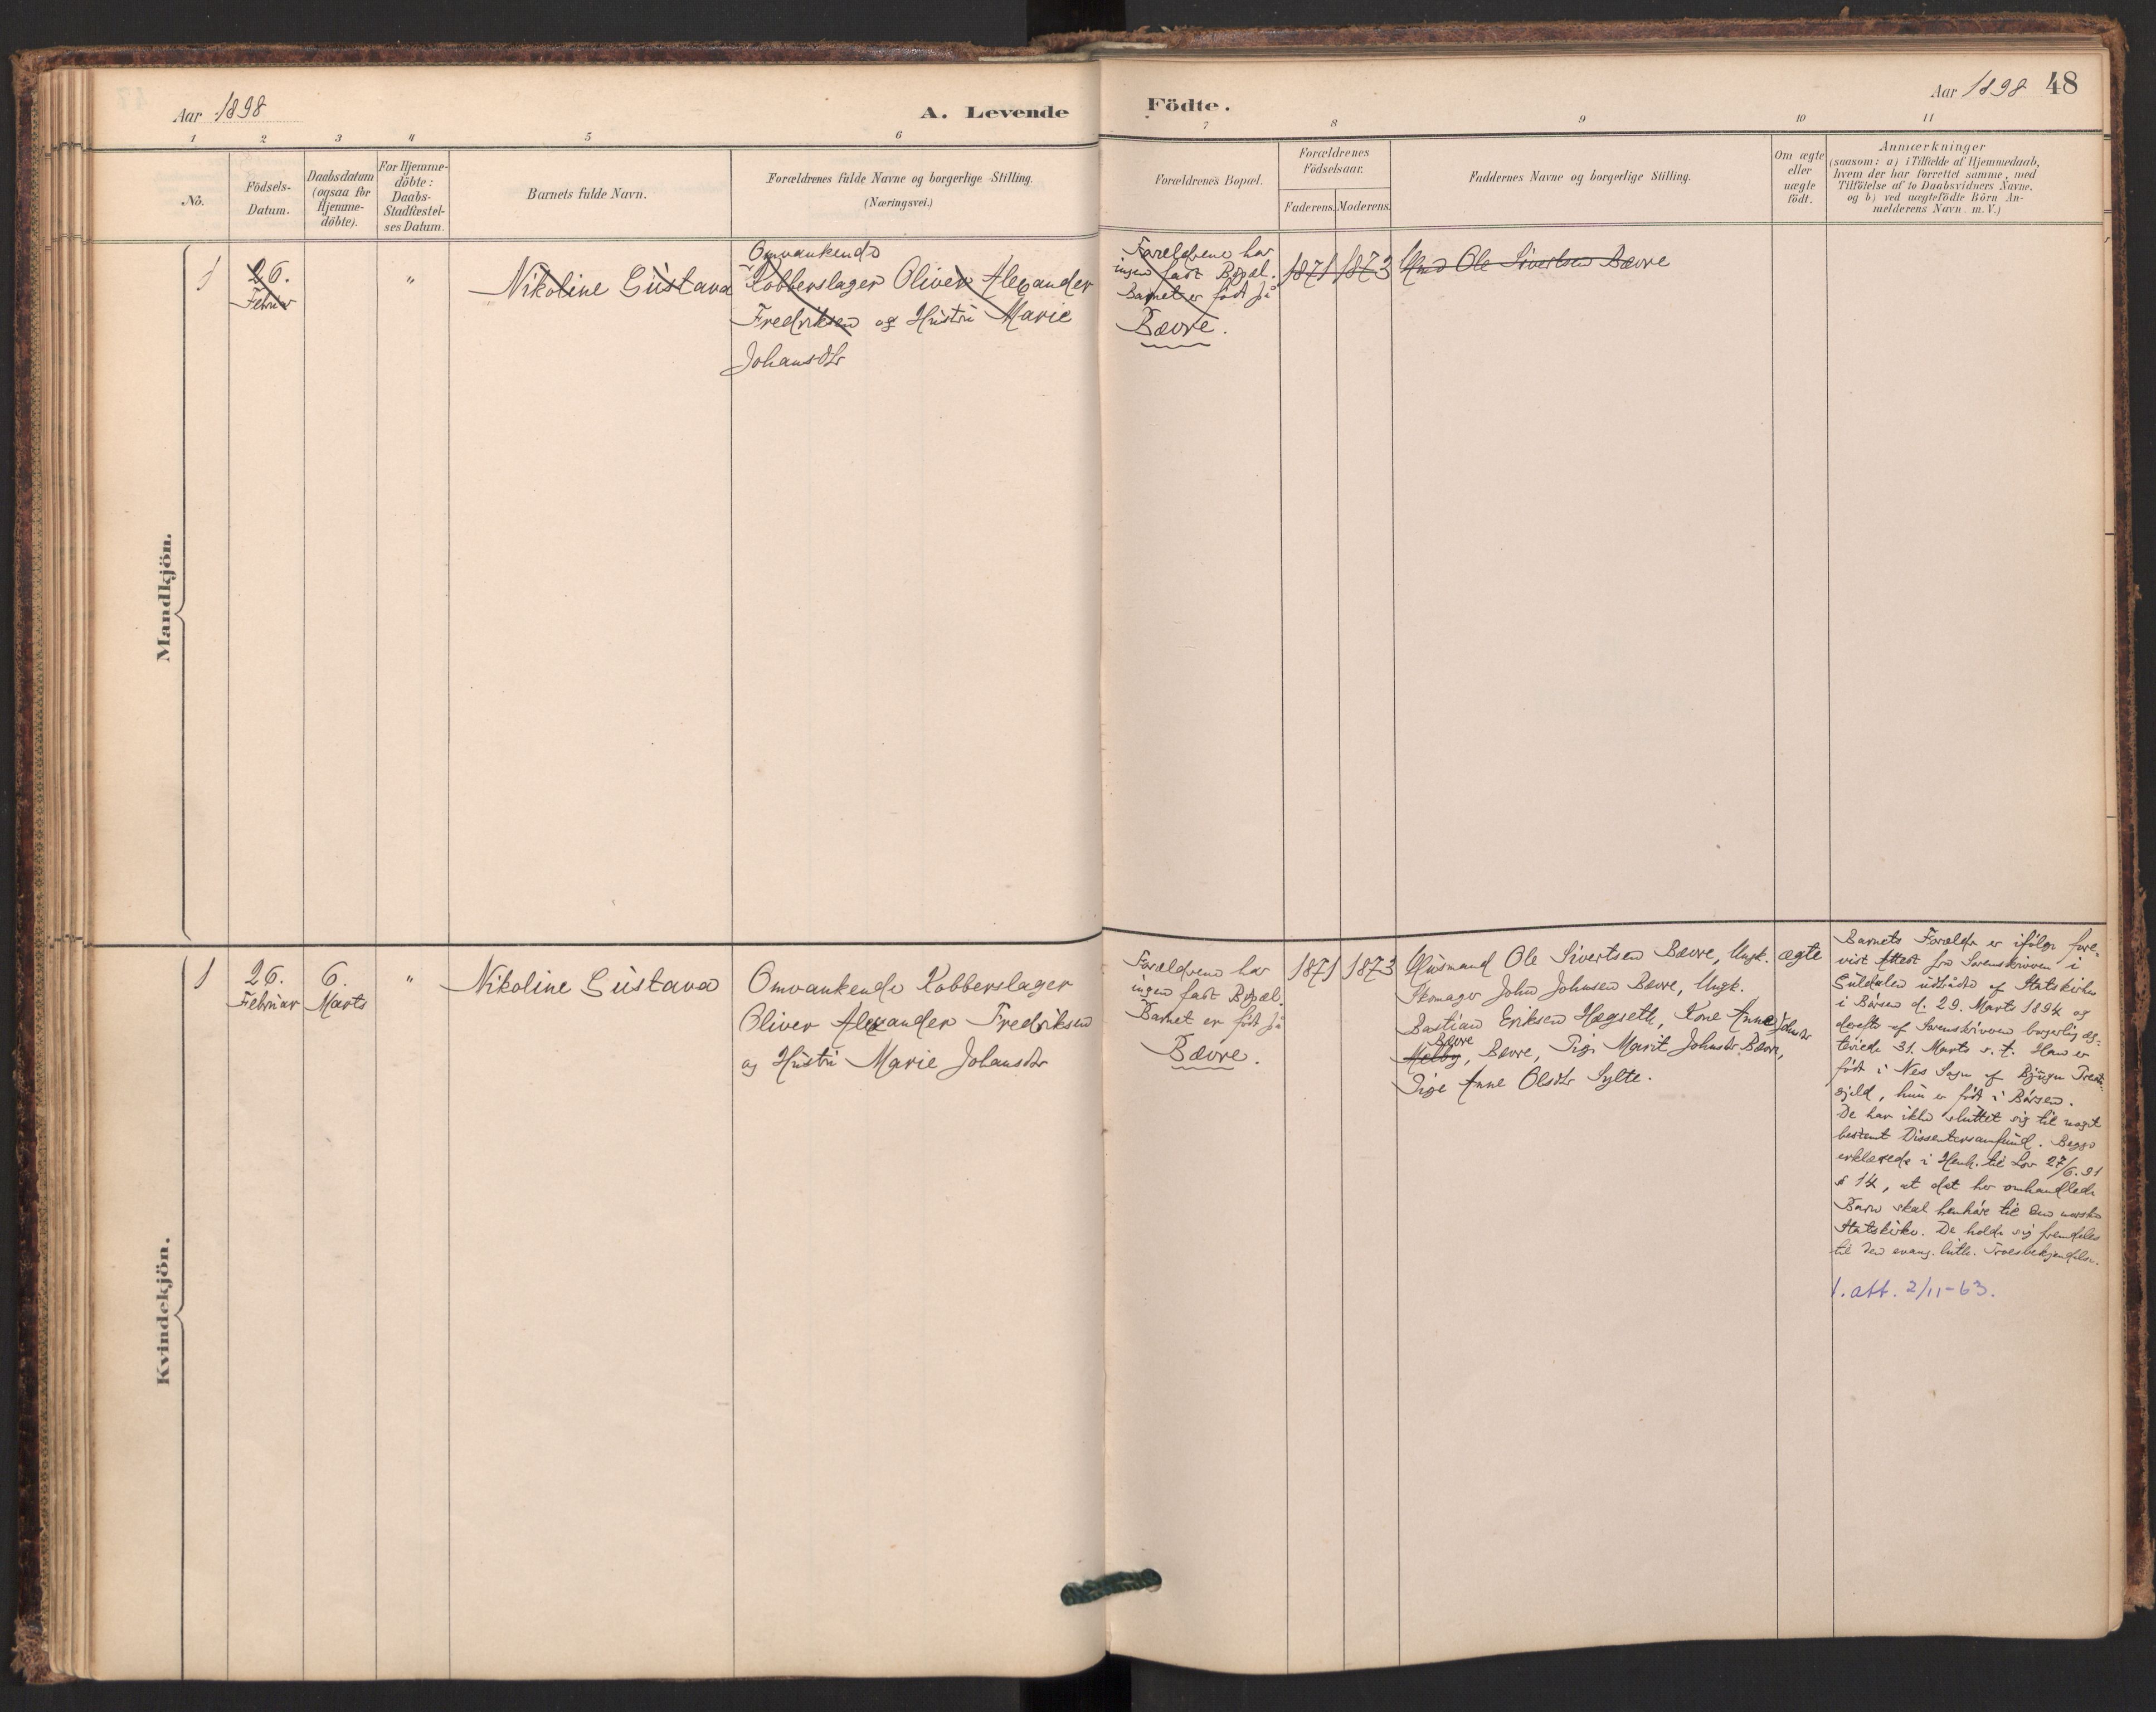 Aar 1898
A. Levende
Födte.
Aar 1898 48
1 2 3 4 5 6 7 8 9 10 11
No.
Födsels-
Datum.
Daabsdatum
(ogsaa for
Hjemme-
döbte).
For Hjemme-
döbte:
Daabs-
Stadfæstel-
ses Datum.
Barnets fulde Navn.
Forældrenes fulde Navne og borgerlige Stilling.
(Næringsvei.)
Forældrenes Bopæl.
Forældrenes
Födselsaar.
Faderens. Moderens.
Faddernes Navne og borgerlige Stilling.
Om ægte
eller
uægte
födt.
Anmærkninger
(saasom: a) i Tilfælde af Hjemmedaab,
hvem der har forrettet samme, med
Tilföielse af to Daabsvidners Navne.
og b) ved uægtefödte Börn An-
melderens Navn m. V.)
Mandkjön.
1
26.
Februar
"
Nikoline Gustava
Omvankende
Kobberslager Oliver Alexander
Fredriksen og Hustru Marie
Johansdtr
Forældrene har
ingen fast Bopæl.
Barnet er født på
Bævre.
1871 1873
Husmd Ole Sivertsen Bævre
Kvindekjön.
1
26.
Februar
6.
Marts
"
Nikoline Gustava
Omvankende Kobberslager
Oliver Alexander Fredriksen
og Hustru Marie Johansdtr
Forældrene har
ingen fast Bopæl.
Barnet er født på
Bævre.
1871 1873
Husmand Ole Sivertsen Bævre, Ungk.
Skomager John Johnsen Bævre, Ungk.
Bastian Eriksen Hægseth, Kone Anne Johnsdr
Bævre
Melby, Bævre, Pige Marit Johnsdr Bævre,
Pige Anne Olsdtr Sylte.
ægte
Barnets Forældre er ifølge fore-
vist Attest fra Sorenskriveren i
Guldalen udtrådt af Statskirken
i Børsen d. 29. Marts 1894 og
derefter af Sorenskriveren borgerlig æg-
teviede 31. Marts s. A. Han er
født i Nes Sogn af Bjugn Præste-
gjeld, hun er født i Børsen.
De har ikke sluttet sig til noget
bestemt Dissentersamfund. Begge
erklærede i Henh. til Lov 27/6.91
§ 14, at det her omhandlede
Barn skal henhøre til den norske
Statskirke. De holde sig fremdeles
til den evang. luth. Troesbekjendelse.
1. att. 2/11-63.